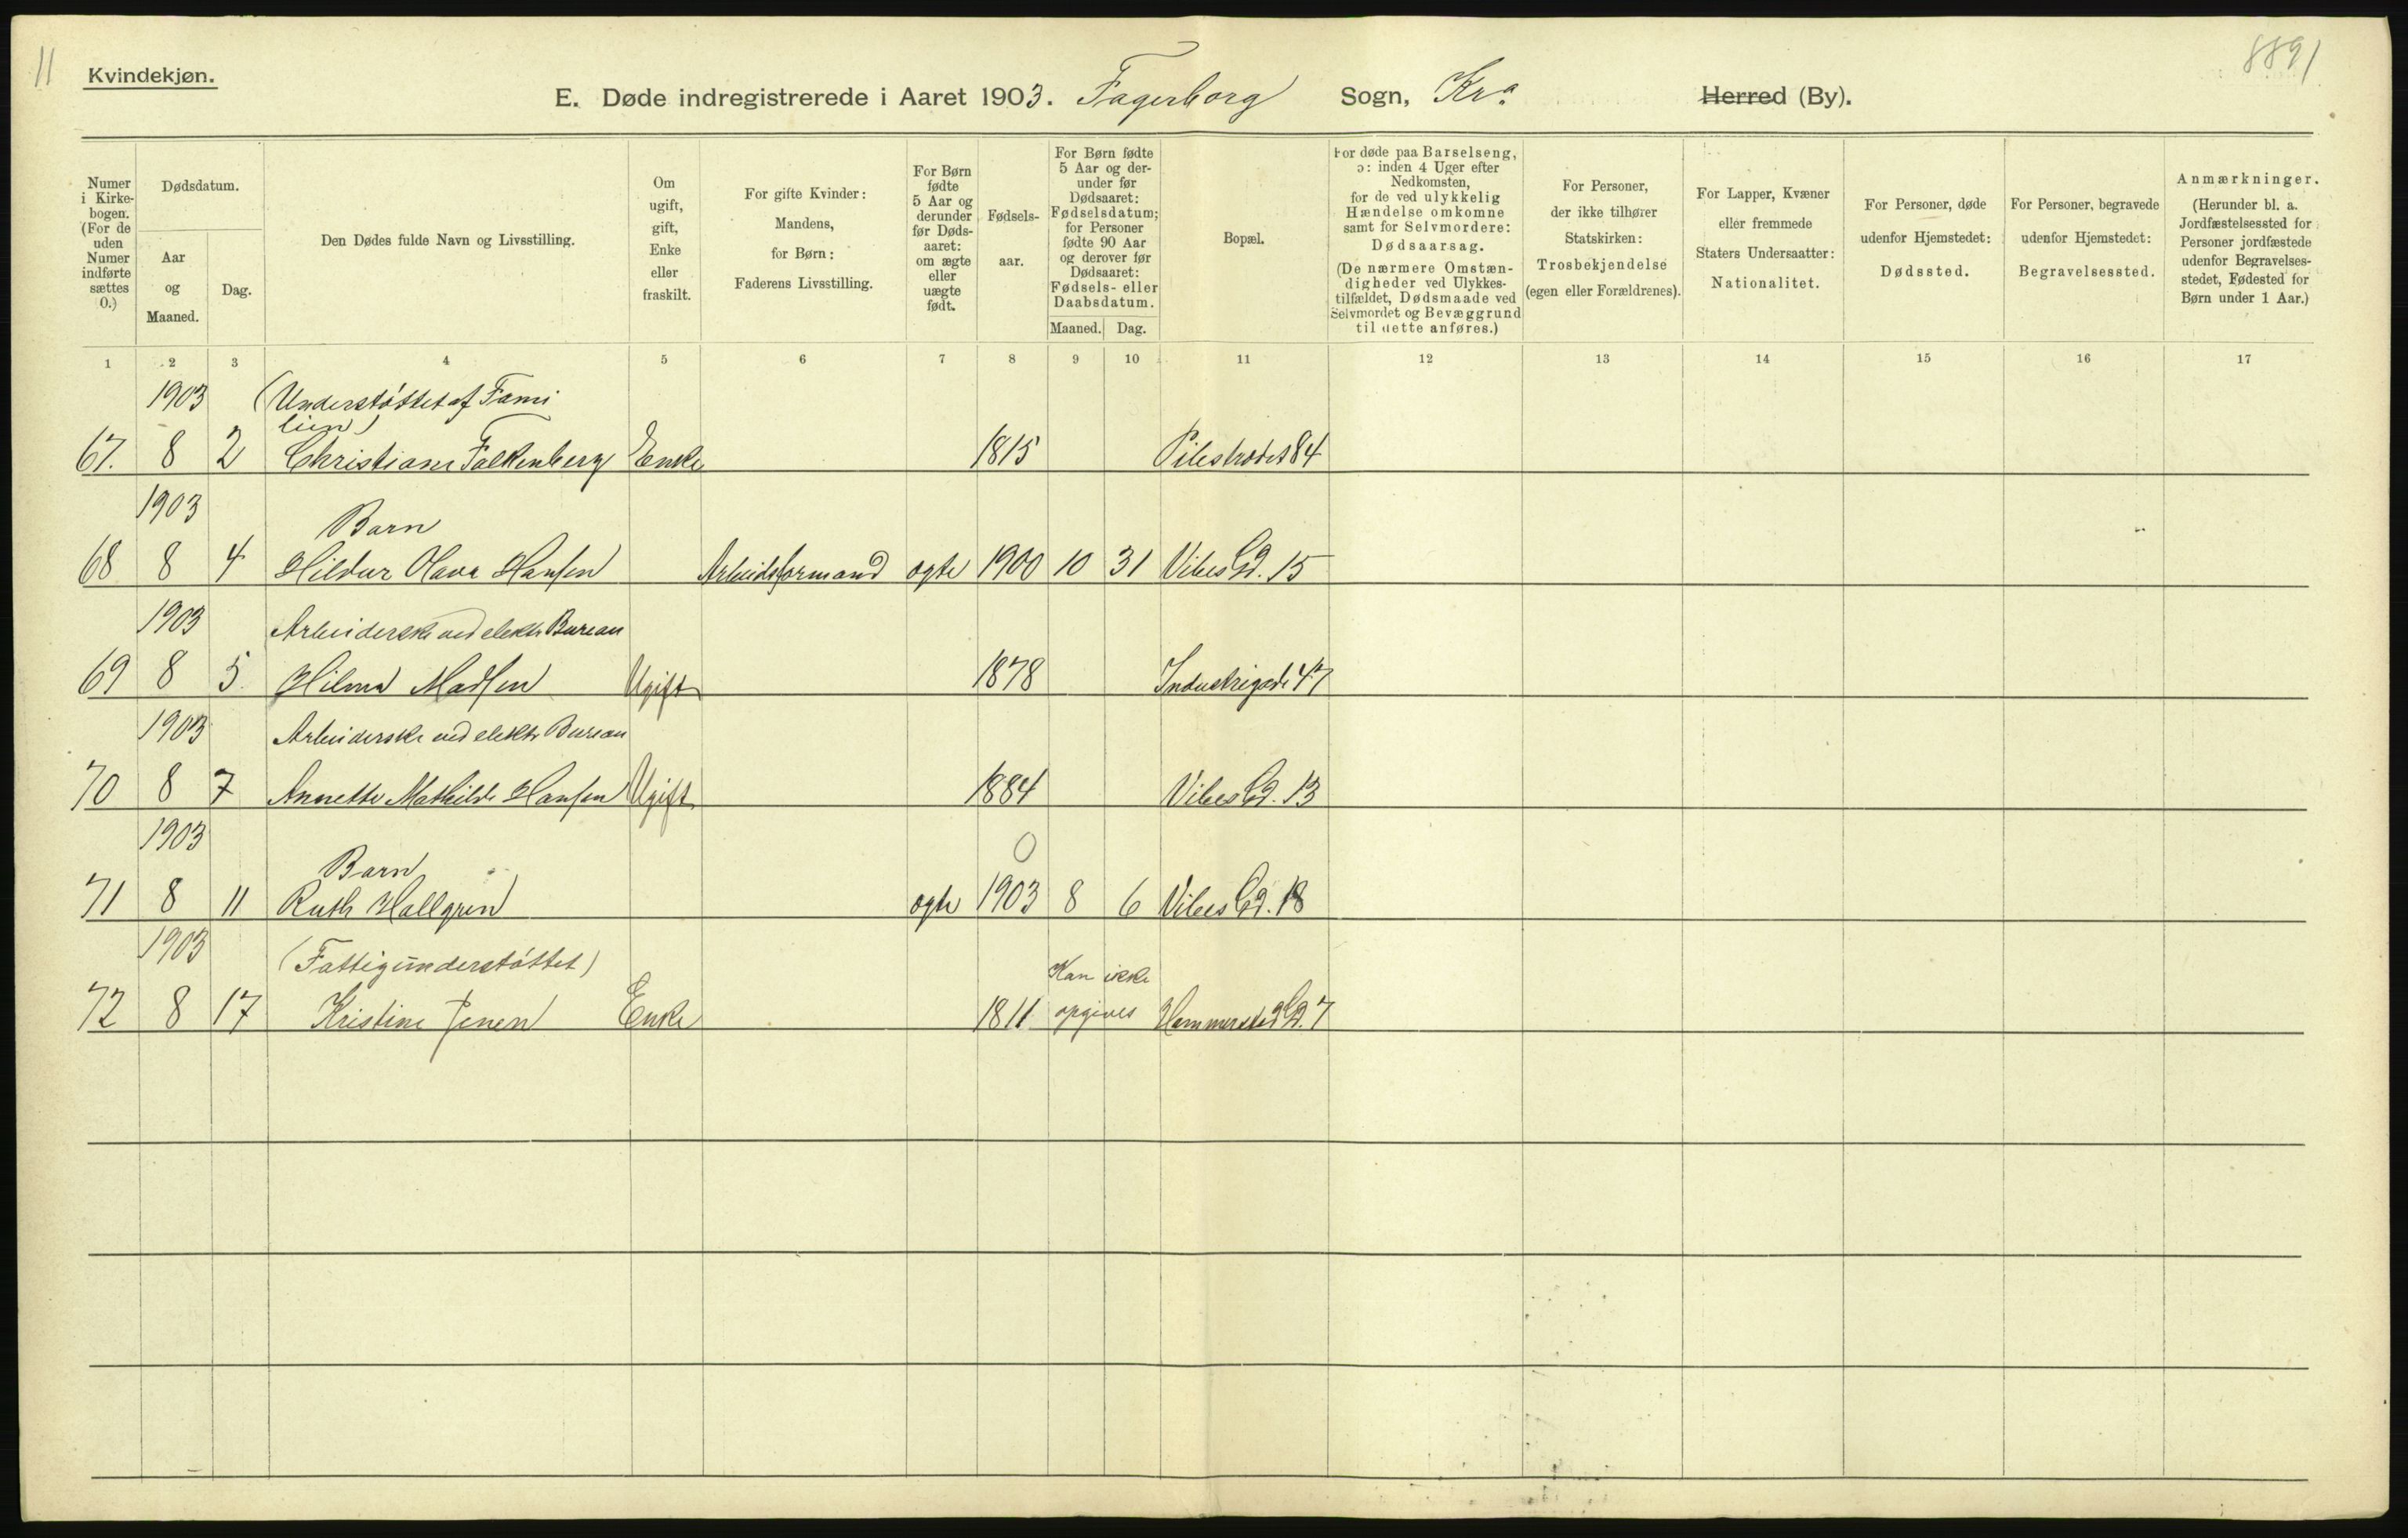 11
8891
Kvindekjøn.
E. Døde indregistrerede i Aaret 1903. Fagerborg Sogn, Kra. Herred (By).
Numer
i Kirke-
bogen.
(For de
uden
Numer
indførte
sættes
0.)
Dødsdatum.
Aar
og
Maaned.
Dag.
Den Dødes fulde Navn og Livsstilling.
Om
ugift,
gift,
Enke
eller
fraskilt.
For gifte Kvinder:
Mandens,
for Børn:
Faderens Livsstilling.
For Børn
fødte
5 Aar og
derunder
før Døds-
aaret:
om ægte
eller
uægte
født.
Fødsels-
aar.
For Børn fødte
5 Aar og der-
under før
Dødsaaret:
Fødselsdatum;
for Personer
fødte 90 Aar
og derover før
Dødsaaret:
Fødsels- eller
Daabsdatum.
Maaned. Dag.
Bopæl.
For døde paa Barselseng,
ɔ: inden 4 Uger efter
Nedkomsten,
for de ved ulykkelig
Hændelse omkomne
samt for Selvmordere:
Dødsaarsag.
(De nærmere Omstæn-
digheder ved Ulykkes-
tilfældet, Dødsmaade ved
Selvmordet og Bevæggrund
til dette anføres.)
For Personer,
der ikke tilhører
Statskirken:
Trosbekjendelse
(egen eller Forældrenes).
For Lapper, Kvæner
eller fremmede
Staters Undersaatter:
Nationalitet.
For Personer, døde
udenfor Hjemstedet:
Dødssted.
For Personer, begravede
udenfor Hjemstedet:
Begravelsessted.
Anmærkninger.
(Herunder bl. a.
Jordfæstelsessted for
Personer jordfæstede
udenfor Begravelses-
stedet, Fødested for
Børn under 1 Aar.)
1 2 3 4 5 6 7 8 9 10 11 12 13 14 15 16 17
1903 (Understøttet af Fami
lien)
67. 8 2 Christiane Falkenberg Enke 1815 Pilestrædet 84
1903
Barn
68 8 4 Hildur Olava Hansen Arbeidsformand ægte 1900 10 31 Vibes Gd. 15
1903 Arbeiderske ved elektr Bureau
69 8 5. Hilma Madsen Ugift 1878 Industrigade 47
1903 Arbeiderske ved elektr Bureau
70 8 7 Annette Mathilde Hansen Ugift 1884 Vibes Gd. 13
1903 0
Barn
71 8 11 Ruth Hallgren ægte 1903 8 6 Vibes Gd. 18
1903 (Fattigunderstøttet)
Kan ikke
72 8 17 Kristine Jenen Enke 1811 opgives Hammerstad Gd. 7